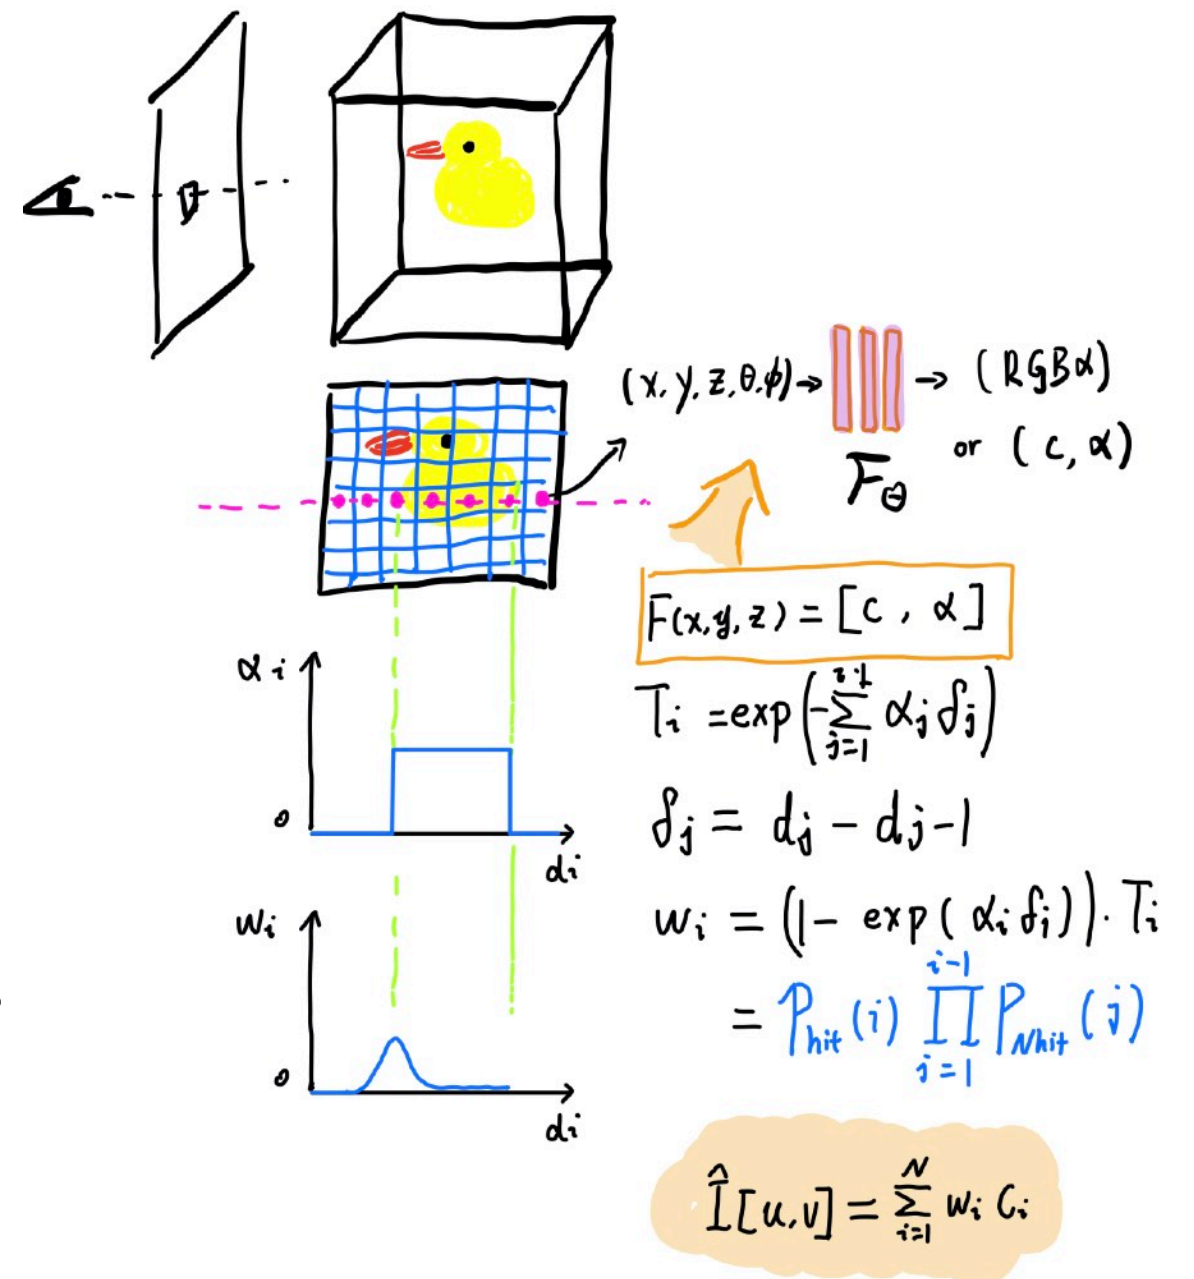 (x, y, z, θ, φ) → → (RGBα)
or (c, α)
F_Θ
F(x, y, z) = [c, α]
T_i = exp(-∑_{j=1}^{i-1} α_j δ_j)
δ_j = d_j - d_j-1
w_i = (1 - exp(α_i δ_i)) · T_i
= P_hit (i) ∏_{j=1}^{i-1} P_Nhit (j)
Î[u, v] = ∑_{i=1}^{N} w_i c_i
α_i
0
d_i
w_i
0
d_i